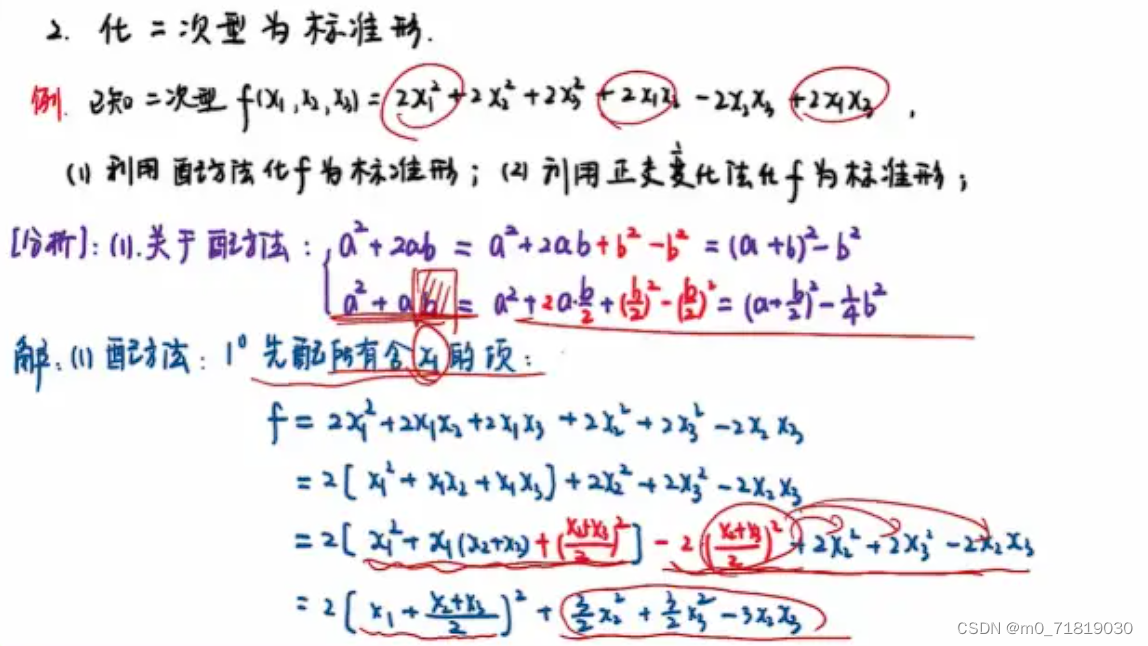 2. 化二次型为标准形.
例. 已知二次型 f(x₁, x₂, x₃) = 2x₁² + 2x₂² + 2x₃² + 2x₁x₂ - 2x₂x₃ + 2x₁x₃ ,
(1) 利用配方法化f为标准形; (2) 利用正交变化法化f为标准形;
[分析]: (1). 关于配方法: { a² + 2ab = a² + 2ab + b² - b² = (a + b)² - b²
a² + ab = a² + 2a·b/2 + (b/2)² - (b/2)² = (a + b/2)² - 1/4 b²
解: (1) 配方法: 1° 先配所有含 x₁ 的项:
f = 2x₁² + 2x₁x₂ + 2x₁x₃ + 2x₂² + 2x₃² - 2x₂x₃
= 2[x₁² + x₁x₂ + x₁x₃] + 2x₂² + 2x₃² - 2x₂x₃
= 2[x₁² + x₁(x₂+x₃) + ((x₂+x₃)/2)²] - 2((x₂+x₃)/2)² + 2x₂² + 2x₃² - 2x₂x₃
= 2[x₁ + (x₂+x₃)/2]² + 3/2 x₂² + 3/2 x₃² - 3x₂x₃
CSDN @m0_71819030